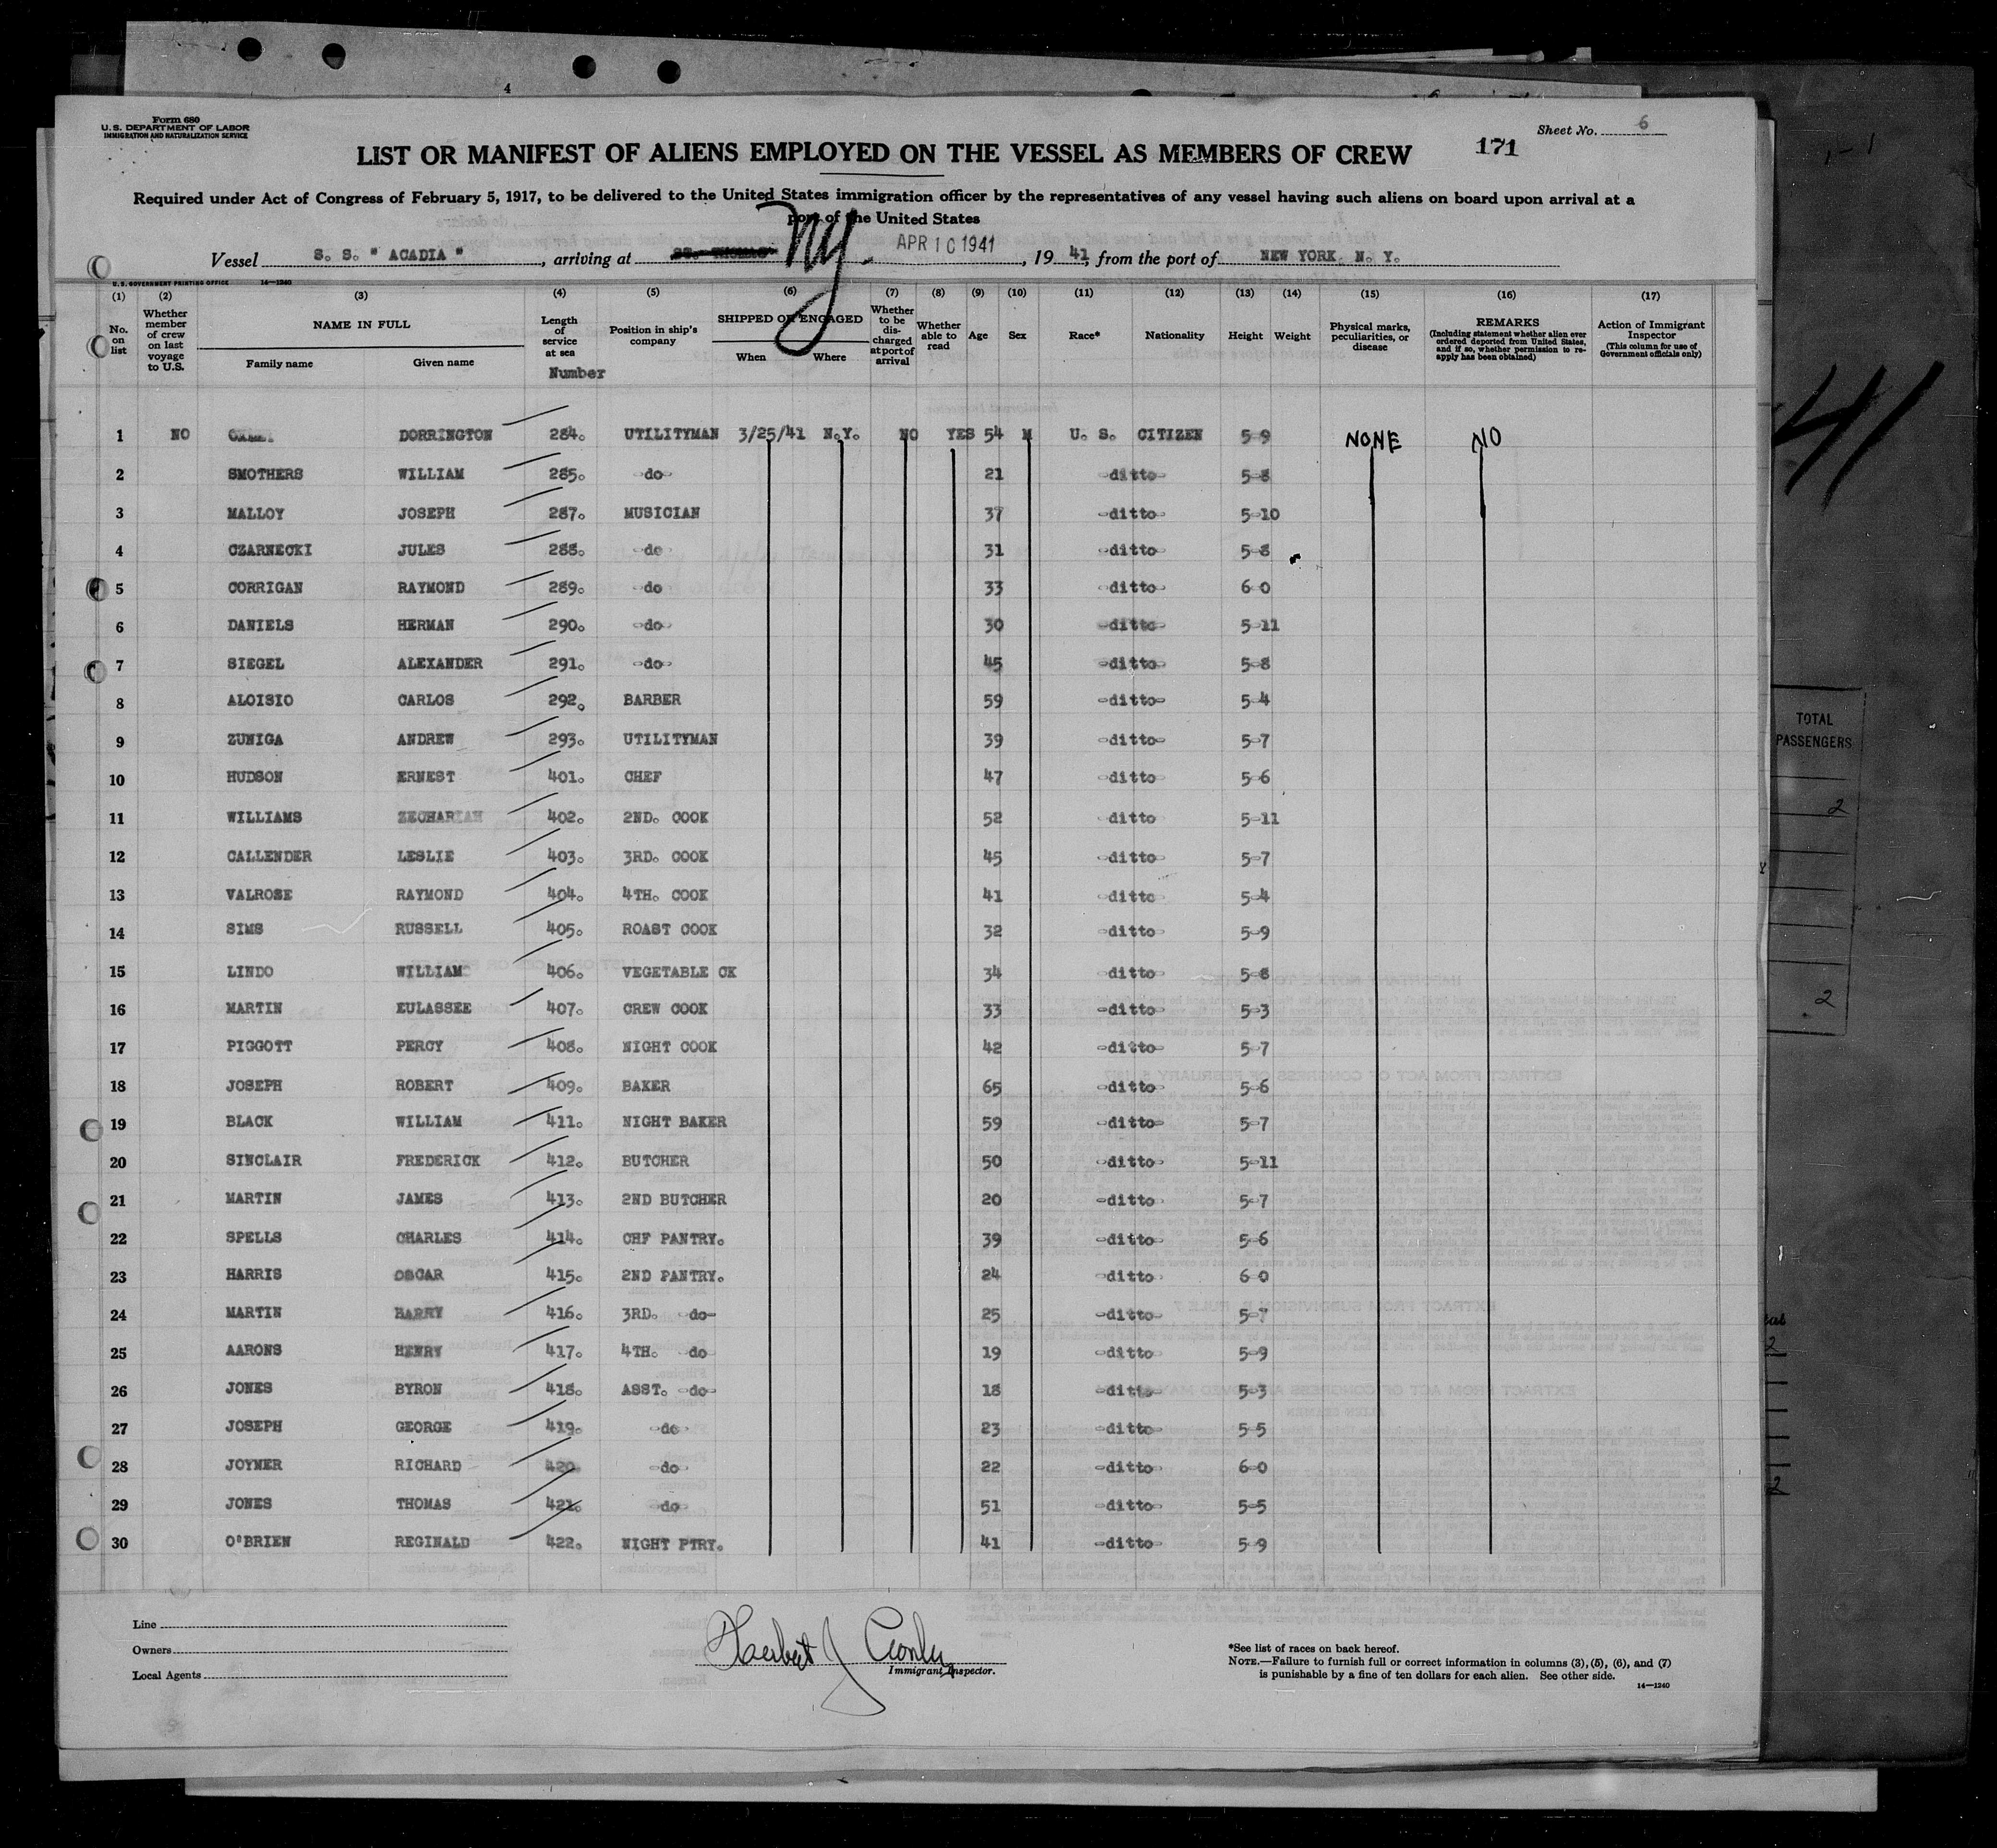 4
Form 680
U.S. DEPARTMENT OF LABOR
IMMIGRATION AND NATURALIZATION SERVICE
Sheet No. 6
LIST OR MANIFEST OF ALIENS EMPLOYED ON THE VESSEL AS MEMBERS OF CREW
171
Required under Act of Congress of February 5, 1917, to be delivered to the United States immigration officer by the representatives of any vessel having such aliens on board upon arrival at a
port of the United States
Vessel S. S. " ACADIA ", arriving at ST. THOMAS NY. APR 10 1941, 19 41, from the port of NEW YORK. N. Y.
U.S. GOVERNMENT PRINTING OFFICE 14—1240
(1) (2) (3) (4) (5) (6) (7) (8) (9) (10) (11) (12) (13) (14) (15) (16) (17)
No. on list
Whether member of crew on last voyage to U.S.
NAME IN FULL
Family name Given name
Length of service at sea
Number
Position in ship's company
SHIPPED OR ENGAGED
When Where
Whether to be discharged at port of arrival
Whether able to read
Age
Sex
Race*
Nationality
Height
Weight
Physical marks, peculiarities, or disease
REMARKS
(Including statement whether alien ever ordered deported from United States, and if so, whether permission to reapply has been obtained)
Action of Immigrant Inspector
(This column for use of Government officials only)
1 NO DORRINGTON 284. UTILITYMAN 3/25/41 N.Y. NO YES 54 M U. S. CITIZEN 5-9 NONE NO
2 SMOTHERS WILLIAM 285. -do- 21 -ditto- 5-8
3 MALLOY JOSEPH 287. MUSICIAN 37 -ditto- 5-10
4 CZARNECKI JULES 288. -do- 31 -ditto- 5-8
5 CORRIGAN RAYMOND 289. -do 33 -ditto- 6-0
6 DANIELS HERMAN 290. -do- 30 -ditto- 5-11
7 SIEGEL ALEXANDER 291. -do- 45 -ditto- 5-8
8 ALOISIO CARLOS 292. BARBER 59 -ditto- 5-4
9 ZUNIGA ANDREW 293. UTILITYMAN 39 -ditto- 5-7
10 HUDSON ERNEST 401. CHEF 47 -ditto- 5-6
11 WILLIAMS ZECHARIAH 402. 2ND. COOK 52 -ditto 5-11
12 CALLENDER LESLIE 403. 3RD. COOK 45 -ditto- 5-7
13 VALROSE RAYMOND 404. 4TH. COOK 41 -ditto- 5-4
14 SIMS RUSSELL 405. ROAST COOK 32 -ditto- 5-9
15 LINDO WILLIAM 406. VEGETABLE CK 34 -ditto- 5-8
16 MARTIN EULASSEE 407. CREW COOK 33 -ditto- 5-3
17 PIGGOTT PERCY 408. NIGHT COOK 42 -ditto- 5-7
18 JOSEPH ROBERT 409. BAKER 65 -ditto- 5-6
19 BLACK WILLIAM 411. NIGHT BAKER 59 -ditto- 5-7
20 SINCLAIR FREDERICK 412. BUTCHER 50 -ditto- 5-11
21 MARTIN JAMES 413. 2ND BUTCHER 20 -ditto- 5-7
22 SPELLS CHARLES 414. CHF PANTRY. 39 -ditto- 5-6
23 HARRIS OSCAR 415. 2ND PANTRY. 24 -ditto- 6-0
24 MARTIN HARRY 416. 3RD. -do- 25 -ditto- 5-7
25 AARONS HENRY 417. 4TH. -do 19 -ditto- 5-9
26 JONES BYRON 418. ASST. -do- 18 -ditto- 5-3
27 JOSEPH GEORGE 419. -do- 23 -ditto- 5-5
28 JOYNER RICHARD 420. -do- 22 -ditto- 6-0
29 JONES THOMAS 421. -do- 51 -ditto- 5-5
30 O'BRIEN REGINALD 422. NIGHT PTRY. 41 -ditto- 5-9
Line
Owners
Local Agents
Herbert J
Immigrant Inspector.
*See list of races on back hereof.
NOTE.—Failure to furnish full or correct information in columns (3), (5), (6), and (7)
is punishable by a fine of ten dollars for each alien. See other side.
14—1240
41
TOTAL
PASSENGERS
2
2
2
2